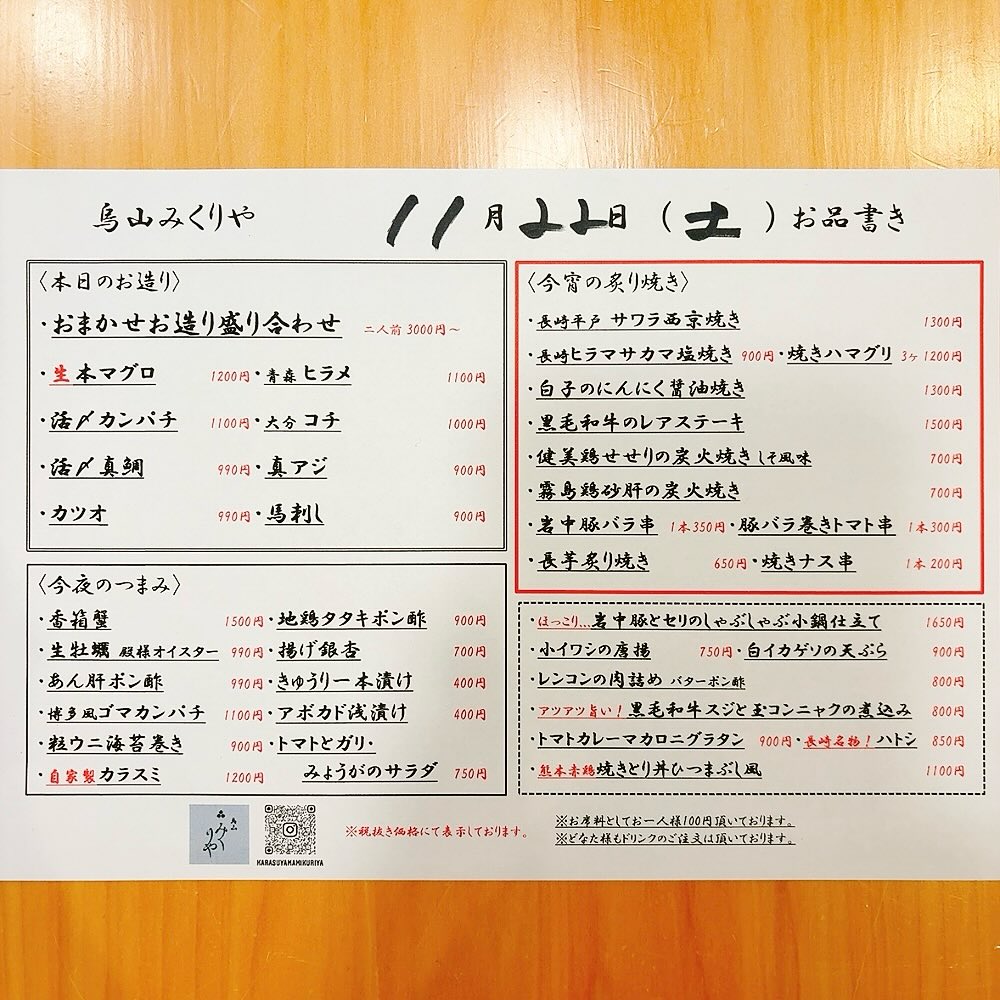 烏山みくりや 11月22日(土)お品書き
〈本日のお造り〉
・おまかせお造り盛り合わせ 二人前 3000円〜
・生本マグロ 1200円・青森 ヒラメ 1100円
・活〆カンパチ 1100円・大分 コチ 1000円
・活〆真鯛 990円・真アジ 900円
・カツオ 990円・馬刺し 900円
〈今夜のつまみ〉
・香箱蟹 1500円・地鶏タタキポン酢 900円
・生牡蠣 殿様オイスター 990円・揚げ銀杏 700円
・あん肝ポン酢 990円・きゅうり一本漬け 400円
・博多風ゴマカンパチ 1100円・アボカド浅漬け 400円
・粒ウニ海苔巻き 900円・トマトとガリ・
・自家製カラスミ 1200円 みょうがのサラダ 750円
〈今宵の炙り焼き〉
・長崎平戸 サワラ西京焼き 1300円
・長崎ヒラマサカマ塩焼き 900円・焼きハマグリ 3ヶ1200円
・白子のにんにく醤油焼き 1300円
・黒毛和牛のレアステーキ 1500円
・健美鶏せせりの炭火焼き しそ風味 700円
・霧島鶏砂肝の炭火焼き 700円
・岩中豚バラ串 1本350円・豚バラ巻きトマト串 1本300円
・長芋炙り焼き 650円・焼きナス串 1本200円
・ほっこり…岩中豚とセリのしゃぶしゃぶ小鍋仕立て 1650円
・小イワシの唐揚 750円・白イカゲソの天ぷら 900円
・レンコンの肉詰め バターポン酢 800円
・アツアツ旨い!黒毛和牛スジと玉コンニャクの煮込み 800円
・トマトカレーマカロニグラタン 900円・長崎名物!ハトシ 850円
・熊本赤鶏焼きとり丼ひつまぶし風 1100円
烏山
みくりや
KARASUYAMAMIKURIYA
※税抜き価格にて表示しております。
※お席料としてお一人様100円頂いております。
※どなた様もドリンクのご注文は頂いております。